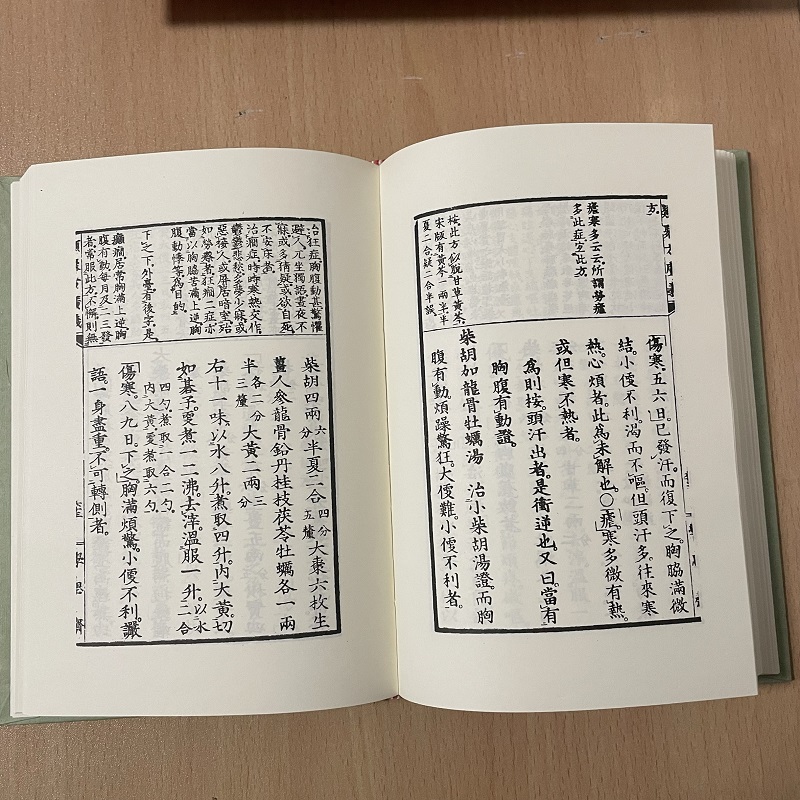 方
瘧寒多云云所謂勞瘧
多此症宜此方
按此方似脫甘草黃芩
宋版有黃芩一兩半半
夏二合疑二合半誤
傷寒。五六日。已發汗。而復下之。胸脇滿微
結。小便不利。渴而不嘔。但頭汗多。往來寒
熱。心煩者。此爲未解也。○瘧。寒多微有熱。
或但寒不熱者。
爲則按。頭汗出者。是衝逆也。又曰。當有
胸腹有動證。
柴胡加龍骨牡蠣湯 治小柴胡湯證。而胸
腹有動。煩躁驚狂。大便難。小便不利者。
治狂症胸腹動甚驚懼
避人兀坐獨語晝夜不
寐或多猜疑或欲自死
不安床者
治癇症時時寒熱交作
鬱鬱悲愁多夢少寐或
惡接人或屏居暗室殆
如勞瘵者狂癇二症亦
當以胸脇苦滿上逆胸
腹動悸等爲目的
下之下外臺有後字是
癲癇居常胸滿上逆胸
腹有動每月及二三發
者常服此方不懈則無
柴胡四兩 八分 半夏二合 四分五釐 大棗六枚 生
薑人參龍骨鉛丹桂枝茯苓牡蠣各一兩
半 各二分三釐 大黃二兩 三分
右十一味。以水八升。煮取四升。內大黃切
如碁子。更煮一二沸。去滓。溫服一升。以水二合
四勺。煮取一合二勺。
內大黃更煮取六勺。
傷寒。八九日。下之。胸滿煩驚。小便不利。讝
語。一身盡重。不可轉側者。